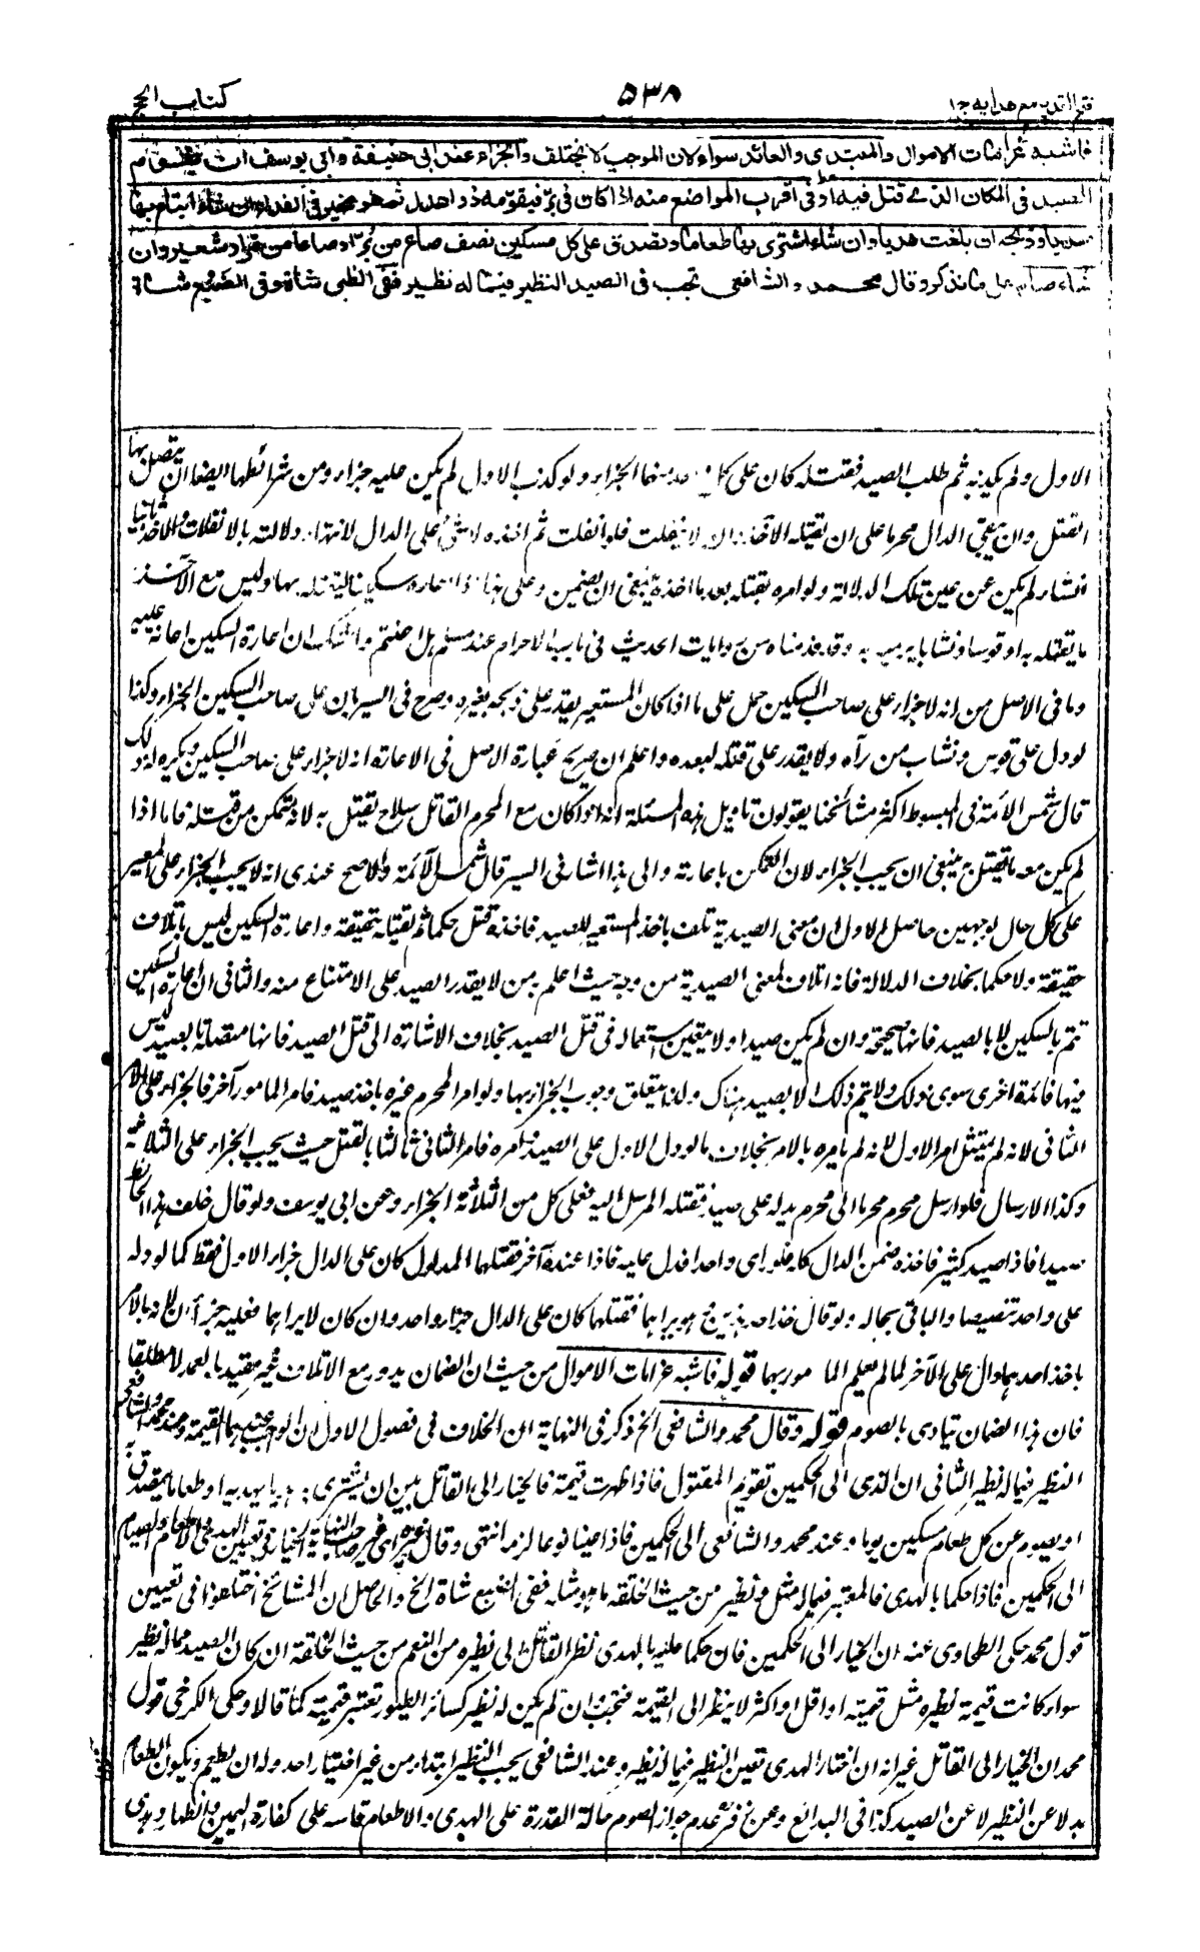 فتح القدير مع هدايه ج١
٥٣٨
كتاب الحج
فاشبه غرامات الاموال والمبتدى والعائد سواء لان الموجب لا يختلف والجزاء عند ابى حنيفة وابى يوسف ان يقوم
الصيد فى المكان الذى قتل فيه او فى اقرب المواضع منه اذا كان فى بر فيقومه ذوا عدل ثم هو مخير فى الفداء ان شاء ابتاع بها
هديا وذبحه ان بلغت هديا وان شاء اشترى بها طعاما وتصدق على كل مسكين نصف صاع من بر او صاعا من تمر او شعير وان
شاء صام على ما نذكر وقال محمد والشافعى تجب فى الصيد النظير فيما له نظير ففى الظبى شاة وفى الضبع شاة
الاول ولم يكذبه ثم طلب الصيد فقتله كان على كل واحد منهما الجزاء ولو كذب الاول لم يكن عليه جزاء ومن شرائطها ايضا ان يتصل بها
القتل وان يبقى الدال محرما على ان يقتله الآخذ وان لا ينفلت فلو انفلت ثم اخذه لا شئ على الدال لانتهاء دلالته بالانفلات والاخذ ثانيا
انشاء لم يكن عن عين تلك الدلالة ولو امره بقتله بعد ما اخذه ينبغى ان يضمن وعلى هذا اذا اعاره سكينا ليقتله بها وليس مع الآخذ
ما يقتله به او قوسا ونشابا يرميه به وقد قدمناه من روايات الحديث فى باب الاحرام عند مسلم هل اعنتم ولا شك ان اعارة السكين اعانة عليه
وما فى الاصل من انه لا جزاء على صاحب السكين حمل على ما اذا كان المستعير يقدر على ذبحه بغيره وصرح فى السير بان على صاحب السكين الجزاء وكذا
لو دل على قوس ونشاب من رآه ولا يقدر على قتله لبعده واعلم ان صريح عبارة الاصل فى الاعارة انه لا جزاء على صاحب السكين ويكره له ذلك
قال شمس الأئمة فى المبسوط اكثر مشائخنا يقولون تاويل هذه المسئلة انه اذا كان مع المحرم القاتل سلاح يقتل به لانه يتمكن من قتله فاما اذا
لم يكن معه ما يقتل به ينبغى ان يجب الجزاء لان التمكن باعارته والى هذا اشار فى السير قال شمس الأئمة والاصح عندى انه لا يجب الجزاء على المعير
على كل حال لوجهين حاصل الاول ان معنى الصيدية تلف باخذ المستعير للصيد فاخذه قتل حكما ثم يقتله حقيقة واعارة السكين ليس باتلاف
حقيقة ولا حكما بخلاف الدلالة فانه اتلاف لمعنى الصيدية من وجه حيث اعلم به من لا يقدر الصيد على الامتناع منه والثانى ان اعارة السكين
تتم بالسكين لا بالصيد فانها صحيحة وان لم يكن صيد اولا يتعين استعماله فى قتل الصيد بخلاف الاشارة الى قتل الصيد فانها متصلة بالصيد ليس
فيها فائدة اخرى سوى ذلك ولا يتم ذلك الا بصيد هناك ولذا يتعلق وجوب الجزاء بها ولو امر المحرم غيره باخذ صيد فامر المامور آخر فالجزاء على الآمر
الثانى لانه لم يمتثل امر الاول لانه لم يامره بالامر بخلاف ما لو دل الاول على الصيد وامره فامر الثانى ثالثا بالقتل حيث يجب الجزاء على الثلاثة
وكذا الارسال فلو ارسل محرم محرما الى محرم يدله على صيد فقتله المرسل اليه فعلى كل من الثلاثة الجزاء وعن ابى يوسف ولو قال خلف هذا الحائط
صيد فاذا صيد كثير فاخذه ضمن الدال كله فلو راى واحدا فدل عليه فاذا عنده آخر فقتلهما المدلول كان على الدال جزاء الاول فقط كما لو دله
على واحد تنصيصا والباقى بحاله ولو قال خذ احد هذين وهو يراهما فقتلهما كان على الدال جزاء واحد وان كان لا يراهما فعليه جزاآن لانه بالامر
باخذ احدهما دال على الآخر لما لم يعلم المامور بهما قوله فاشبه غرامات الاموال من حيث ان الضمان يدور مع الاتلاف غير مقيد بالعمد لا مطلقا
فان هذا الضمان يتادى بالصوم قوله وقال محمد والشافعى الخ ذكر فى النهاية ان الخلاف فى فصول الاول ان الواجب عندهما القيمة وعند محمد والشافعى
النظير فيما له نظير الثانى ان الذى الى الحكمين تقويم المقتول فاذا ظهرت قيمته فالخيار الى القاتل بين ان يشترى بها هديا يهديه او طعاما يتصدق به
او يصوم عن كل طعام مسكين يوما وعند محمد والشافعى الى الحكمين فاذا عينا نوعا لزمه انتهى وقال غيره اى غير صاحب النهاية الخيار فى تعيين الهدى والاطعام والصيام
الى الحكمين فاذا حكما بالهدى فالمعتبر فيما له مثل ونظير من حيث الخلقة ما هو مثله ففى الضبع شاة الخ والحاصل ان المشائخ اختلفوا فى تعيين
قول محمد حكى الطحاوى عنه ان الخيار الى الحكمين فان حكما عليه بالهدى نظر القاتل الى نظيره من النعم من حيث الخلقة ان كان الصيد مما له نظير
سواء كانت قيمة نظيره مثل قيمته او اقل او اكثر لا ينظر الى القيمة فتجب وان لم يكن له نظير كسائر الطيور تعتبر قيمته كما قالا وحكى الكرخى قول
محمد ان الخيار الى القاتل غير انه ان اختار الهدى تعين النظير فيما له نظير وعند الشافعى يجب النظير ابتداء من غير اختيار احد وله ان يطعم ويكون الطعام
بدلا عن النظير لا عن الصيد كذا فى البدائع وعن زفر عدم جواز الصوم حالة القدرة على الهدى والاطعام قاسه على كفارة اليمين والظهار وهدى